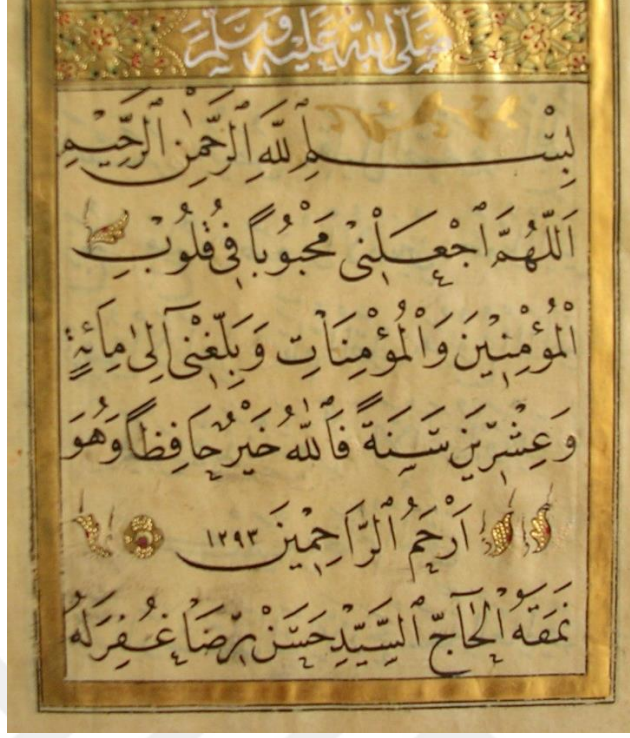 صَلَّى اللهُ عَلَيْهِ وَسَلَّمَ
بِسْمِ اللهِ الرَّحْمٰنِ الرَّحِيمِ
اَللّٰهُمَّ اجْعَلْنِي مَحْبُوبًا فِي قُلُوبِ
الْمُؤْمِنِينَ وَالْمُؤْمِنَاتِ وَبَلِّغْنِي اِلٰى مِائَةٍ
وَعِشْرِينَ سَنَةً فَاللهُ خَيْرٌ حَافِظًا وَهُوَ
اَرْحَمُ الرَّاحِمِينَ ١٢٩٣
نَمَقَهُ الْحَاجّ السَّيِّدْ حَسَنْ رِضَا غُفِرَلَهُ